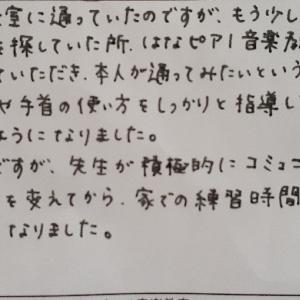 室に通っていたのですが、もう少し
を探していた所、はなピアノ音楽教
ていただき、本人が通ってみたいという
や手首の使い方をしっかりと指導し
ようになりました。
ですが、先生が積極的にコミュニ
を変えてから、家での練習時間
なりました。